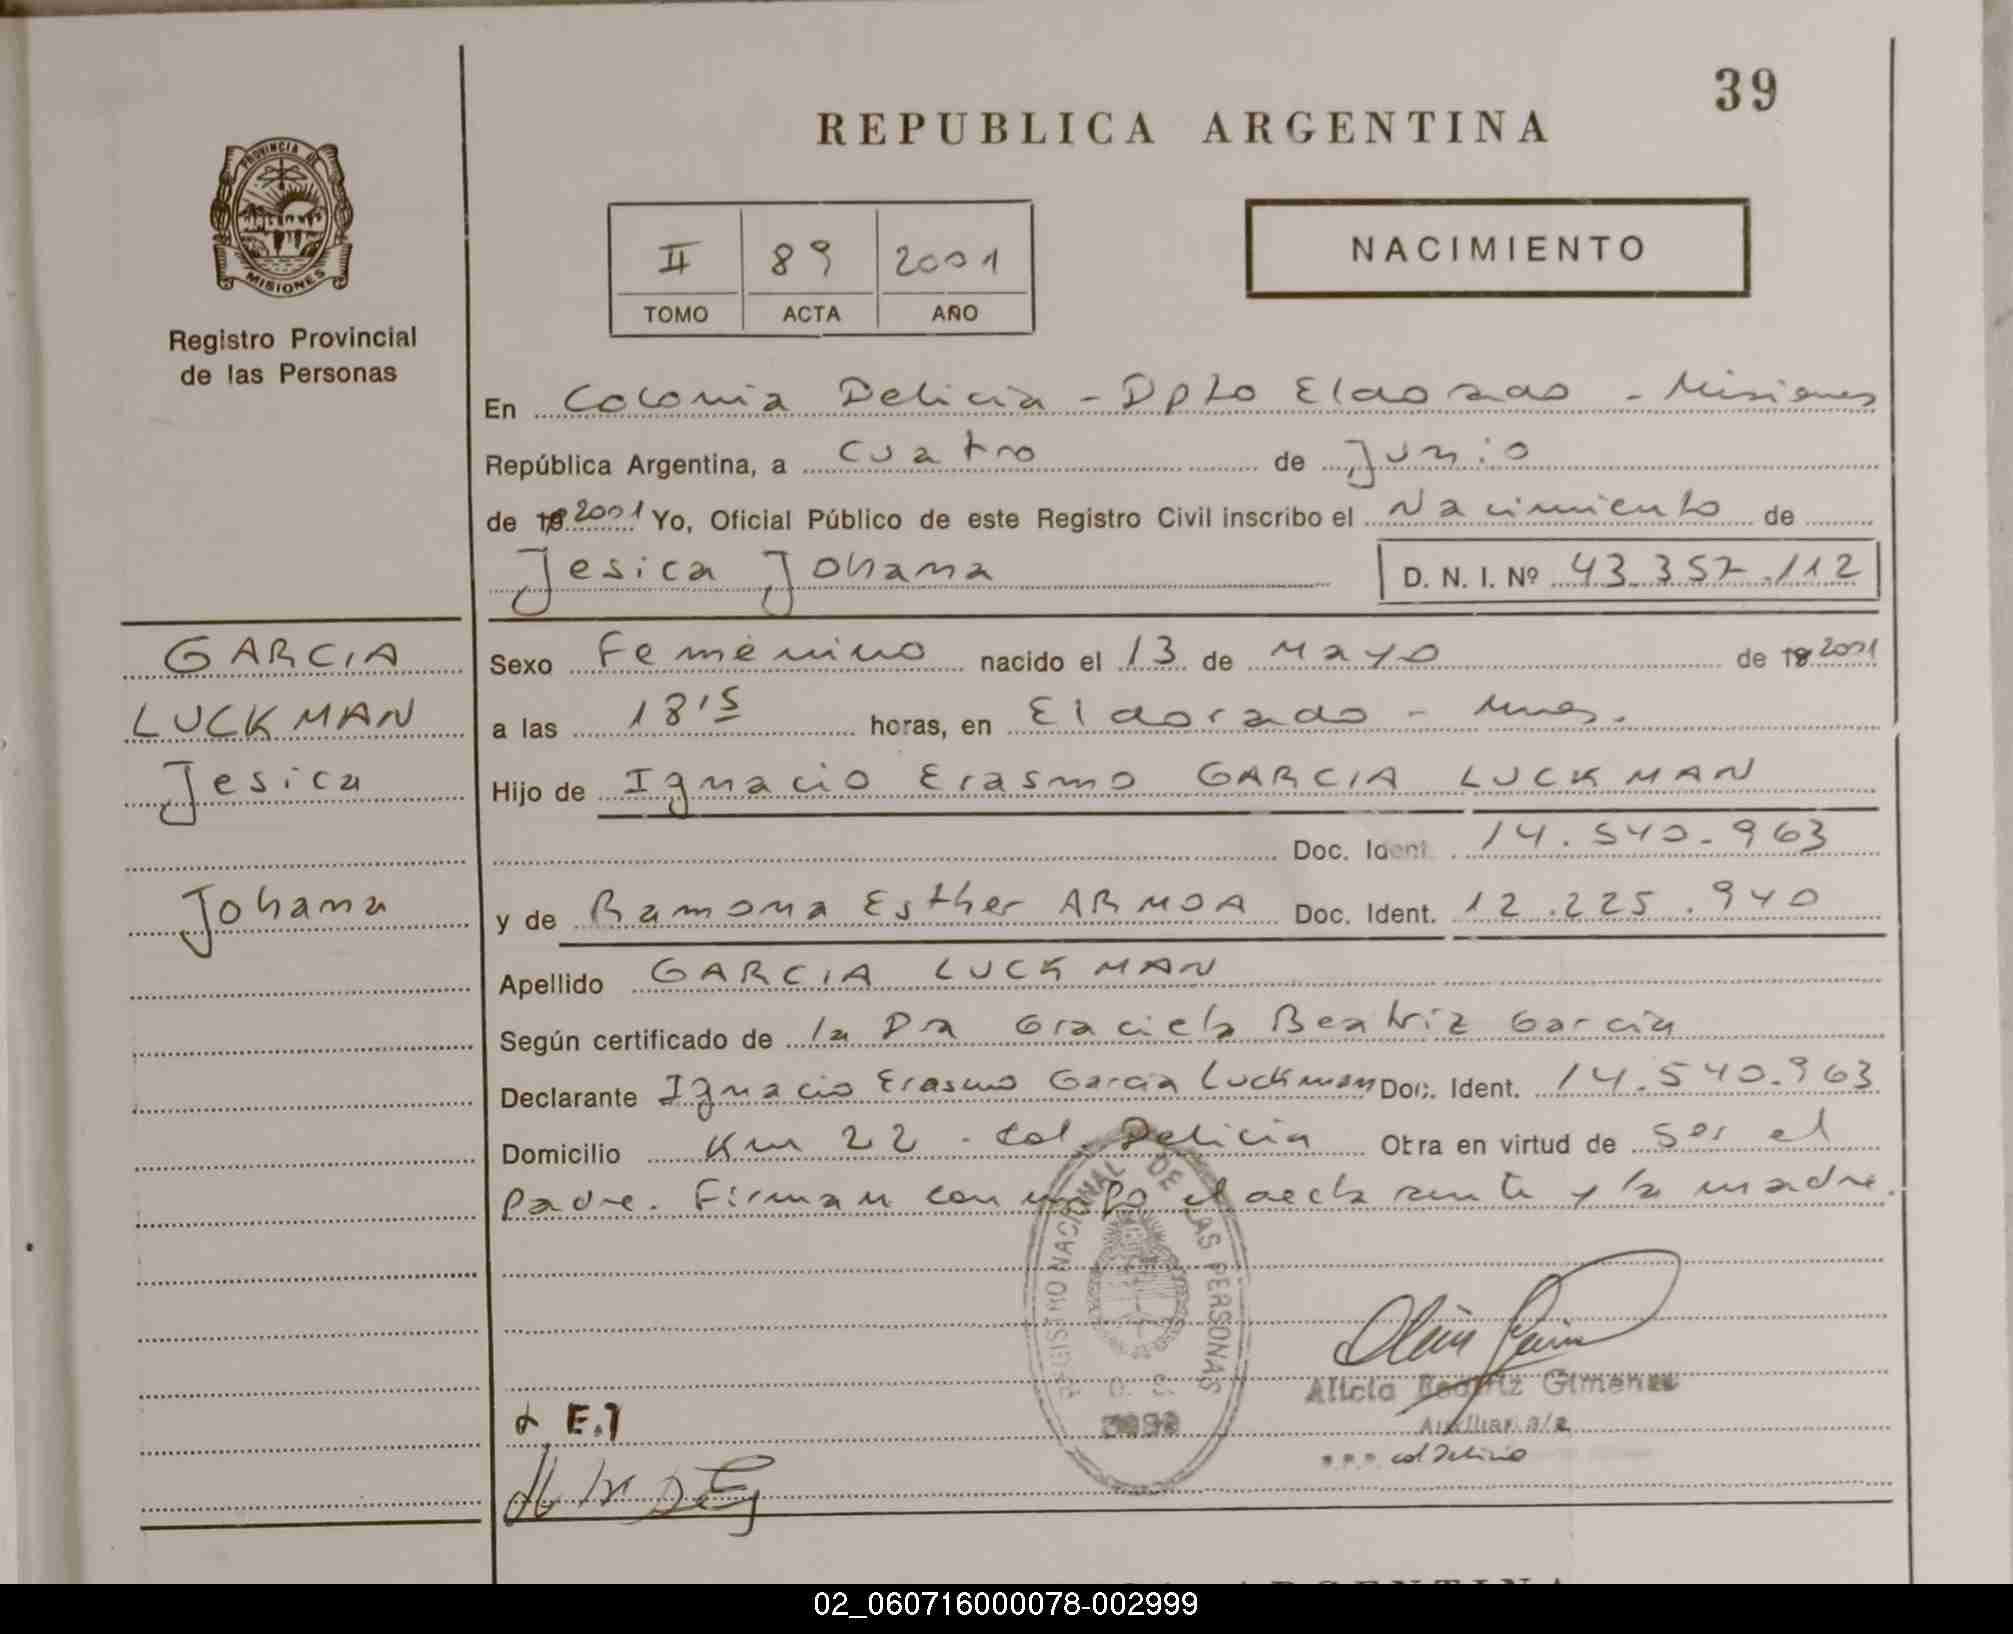 39
REPUBLICA ARGENTINA
PROVINCIA DE
MISIONES
Registro Provincial
de las Personas
II 89 2001
TOMO ACTA AÑO
NACIMIENTO
En Colonia Delicia - Dpto Eldorado - Misiones
República Argentina, a cuatro de Junio
de 19 2001 Yo, Oficial Público de este Registro Civil inscribo el Nacimiento de
Jesica Johana D. N. I. Nº 43.357.112
GARCIA
LUCKMAN
Jesica
Johana
Sexo Femenino nacido el 13 de Mayo de 19 2001
a las 18'5 horas, en Eldorado - Mnes.
Hijo de Ignacio Erasmo GARCIA LUCKMAN
Doc. Ident. 14.540.963
y de Ramona Esther ARMOA Doc. Ident. 12.225.940
Apellido GARCIA LUCKMAN
Según certificado de la Dra Graciela Beatriz Garcia
Declarante Ignacio Erasmo Garcia Luckman Doc. Ident. 14.540.963
Domicilio Km 22 - Col. Delicia Otra en virtud de ser el
Padre. Firman conmigo el declarante y la madre.
REGISTRO NACIONAL DE LAS PERSONAS
O. S.
Alicia Beatriz Gimenez
Auxiliar a/c
col Delicia
E.I
02_060716000078-002999